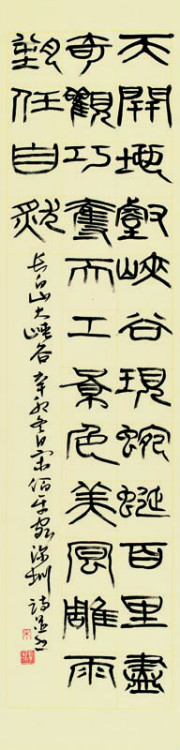 天開地壑峽谷現蜿蜒百里盡
奇觀巧奪天工景色美風雕雨
塑任自然
長白山大峽谷 辛卯冬日宋佰 深圳